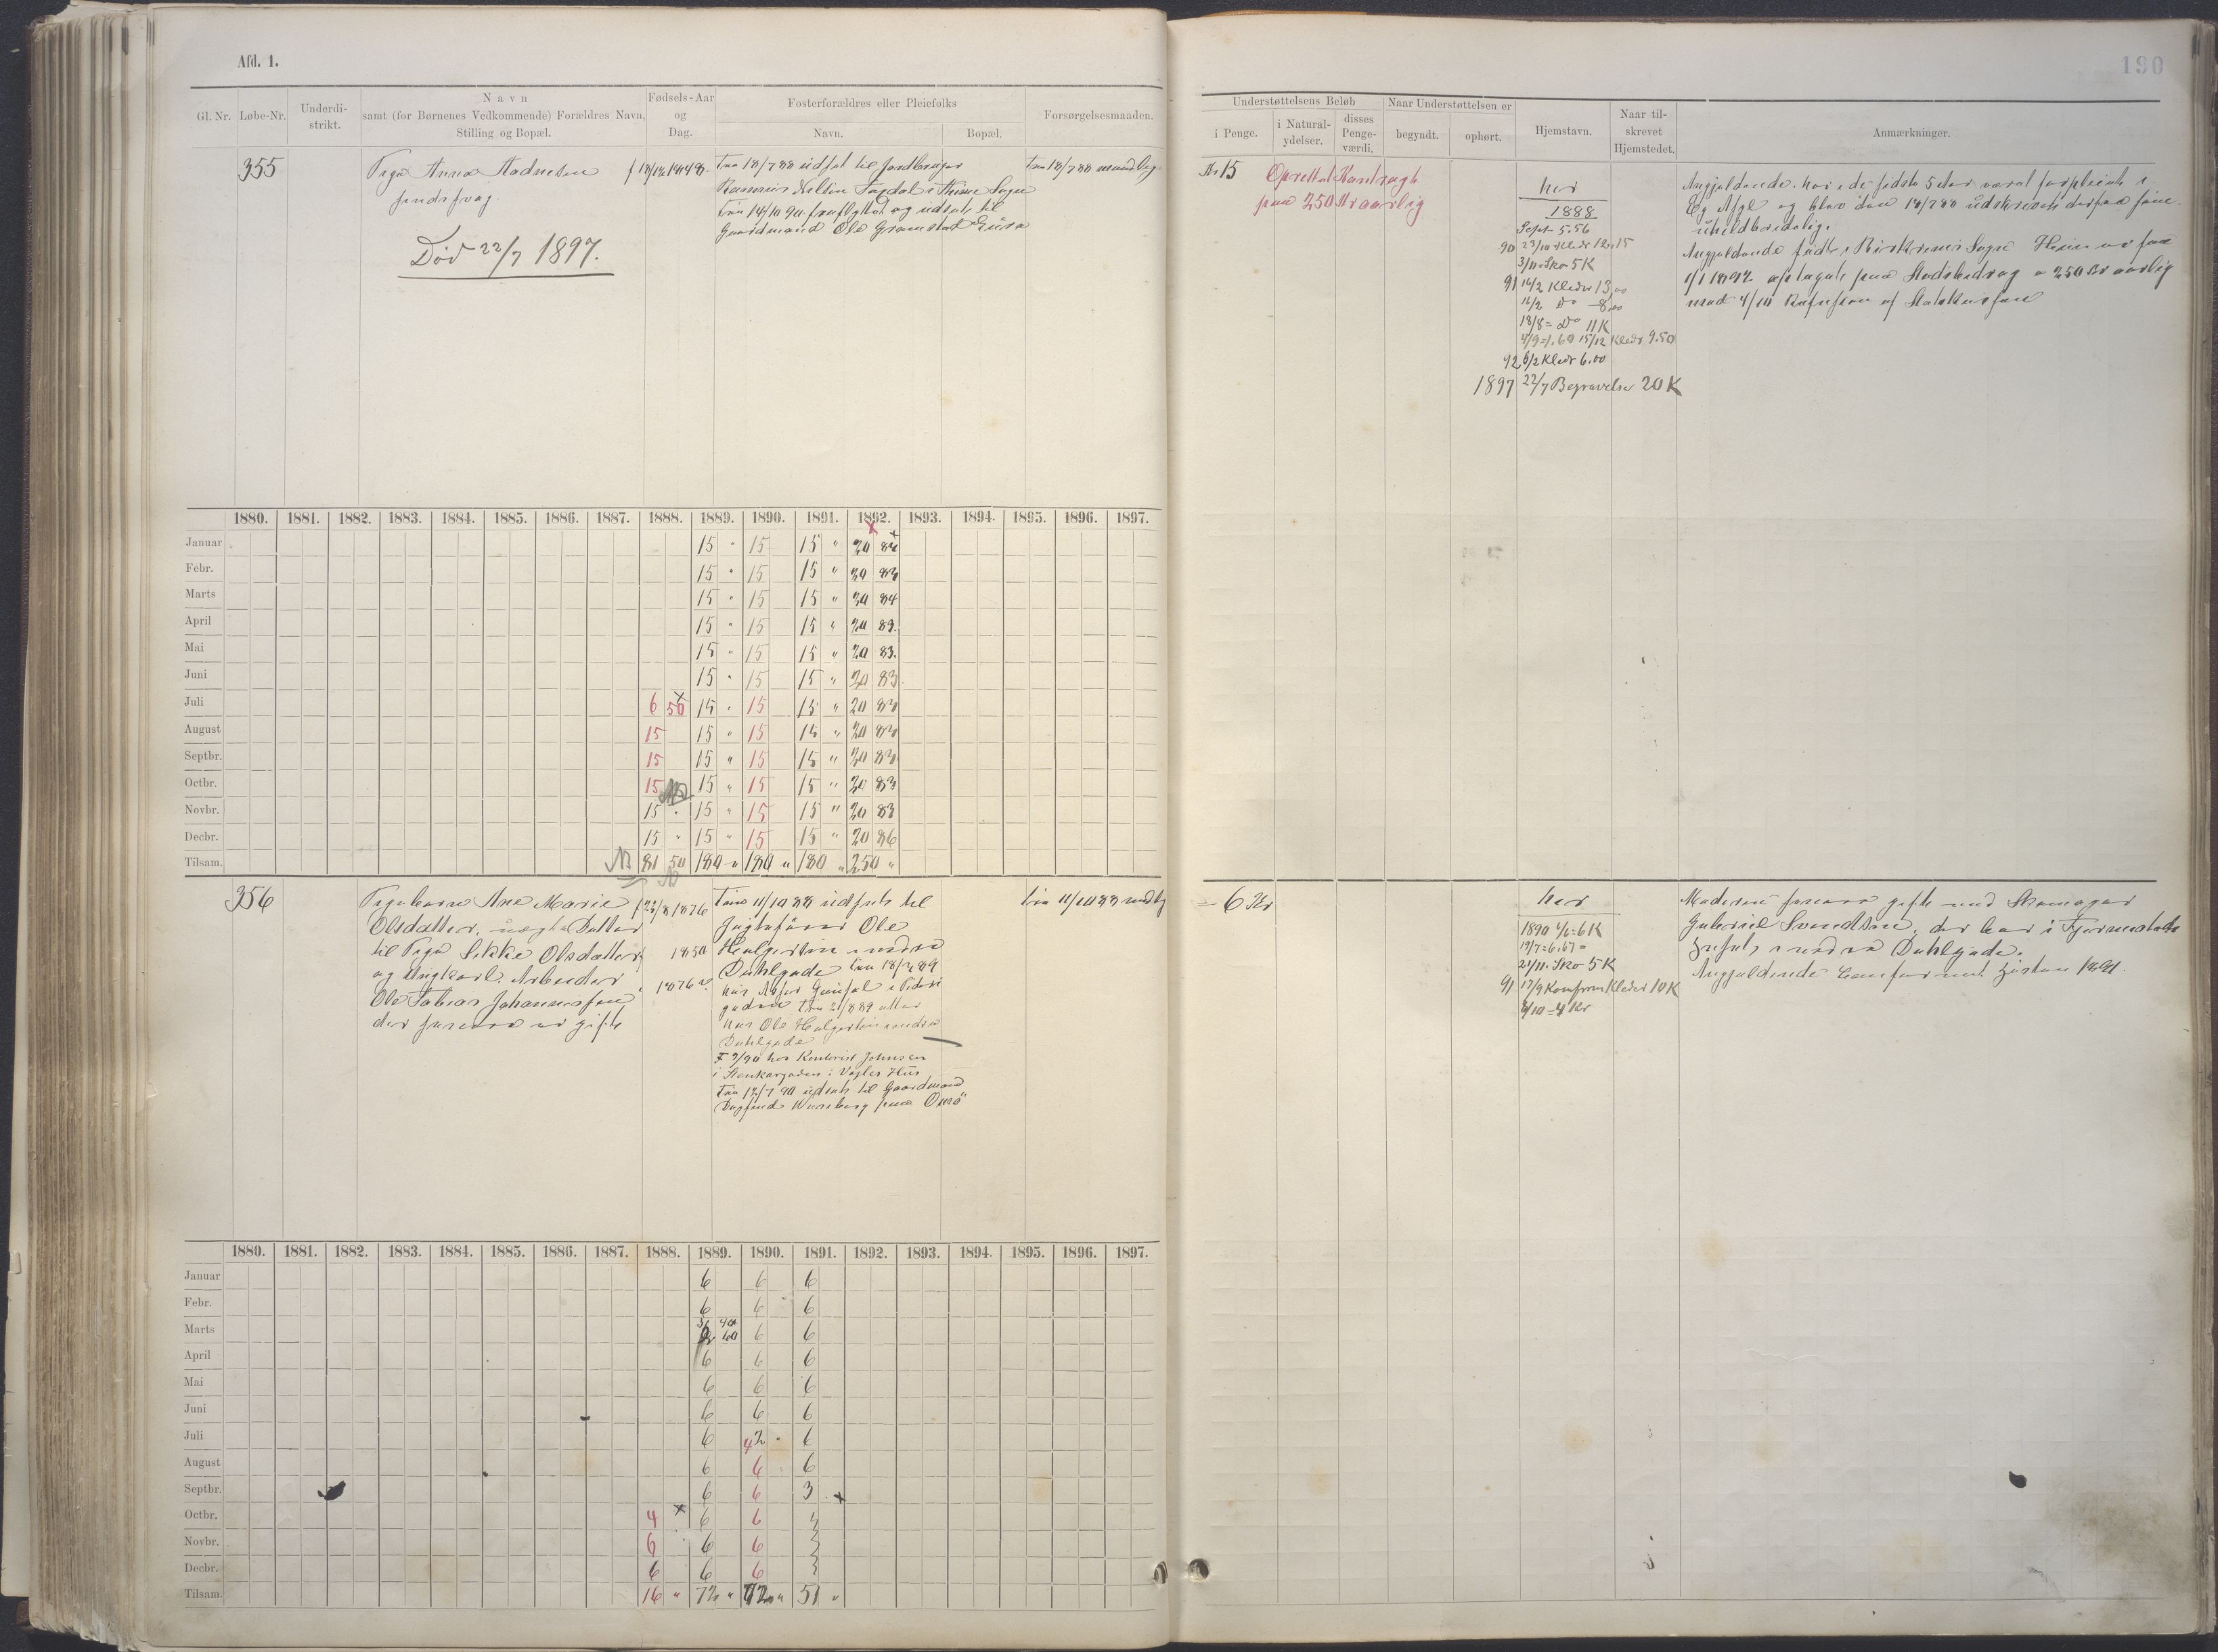 Afd. 1.
190
Gl. Nr. Løbe-Nr. Underdi-strikt. Navn samt (for Børnenes Vedkommende) Forældres Navn, Stilling og Bopæl. Fødsels-Aar og Dag. Fosterforældres eller Pleiefolks Navn. Bopæl. Forsørgelsesmaaden.
Understøttelsens Beløb i Penge. i Natural-ydelser. disses Penge-værdi. Naar Understøttelsen er begyndt. ophørt. Hjemstavn. Naar til-skrevet Hjemstedet. Anmærkninger.
355
Pige Anna Aadnesen
sindssvag
Død 22/7 1897.
fra 18/7 88 udsat til Jordbruger
Rasmus Nilsen Fagdal i Thime Sogn
fra 14/10 90 fraflyttet og udsat til
Gaardmand Ole Gramstad
fra 18/7 88 maandlig
Kr 15
Oprettet Kontragt
paa 250 Kr aarlig
her
1888
Sept 5.56
90 23/10 Kleder
3/11 Sko 5 K
91 14/2 Kleder 13,00
16/2 Do 8,00
18/8 = Do 11 K
4/9 = 1.60 15/12 Kleder 9.50
92 6/2 Kleder 6.00
1897 22/7 Begravelse 20 K
Angjeldende har i de sidste 5 Aar været forpleiet i
Eg Asyl og blev den 18/7 88 udskrevet derfra som
uhelbredelig.
Angjeldende født i Birkrems Sogn Hun er fra
1/1 1892 optaget paa Stadsbidrag a 250 Kr aarlig
med 4/10 Refusion af Statskassen
1880. 1881. 1882. 1883. 1884. 1885. 1886. 1887. 1888. 1889. 1890. 1891. 1892. 1893. 1894. 1895. 1896. 1897.
Januar 15 " 15 15 " 20 84
Febr. 15 " 15 15 " 20 83
Marts 15 " 15 15 " 20 84
April 15 " 15 15 " 20 83
Mai 15 " 15 15 " 20 83
Juni 15 " 15 15 " 20 83
Juli 6 50 15 " 15 15 " 20 83
August 15 15 " 15 15 " 20 83
Septbr. 15 15 " 15 15 " 20 83
Octbr. 15 15 " 15 15 " 20 83
Novbr. 15 " 15 " 15 15 " 20 83
Decbr. 15 " 15 " 15 15 " 20 86
Tilsam. 81 50 180 " 180 " 180 " 250 "
356
Pigebarn Ane Marie
Olsdatter, uægte Datter
til Pige Sikke Olsdatter
og Ungkarl, Arbeider
Ole Tobias Johannessen
der senere er gift
1876
1850
fra 11/10 88 udsat til
Jagtefører Ole
Helgesen nedre
Dahlgade fra 18/3 89
21/8 89 atter
hos Ole Helgesen nedre
Dahlgade
F 9/90 hos Kontorist Johnsen
i Stenkargaden i Vogles Hus
fra 12/7 90 udsat til Gaardmand
Dagfind Wareberg paa Omø
fra 11/10 88 mdl
= 6 Kr
her
1890 4/6 = 6 K
19/7 = 6.67
21/11. Sko 5 K
91 17/9 Konform Kleder 10 K
8/10 = 4 Kr
Moderen senere gift med Skomager
Gabriel Svendsen, der bor i Fjermestads
Huset, nedre Dahlgade.
Angjeldende konfirmert Høsten 1891.
1880. 1881. 1882. 1883. 1884. 1885. 1886. 1887. 1888. 1889. 1890. 1891. 1892. 1893. 1894. 1895. 1896. 1897.
Januar 6 6 6
Febr. 6 6 6
Marts 6 6
April 6 6 6
Mai 6 6 6
Juni 6 6 6
Juli 6 4 2 6
August 6 6 6
Septbr. 6 6 3
Octbr. 4 6 6 3
Novbr. 6 6 6 3
Decbr. 6 6 6 3
Tilsam. 16 " 72 " 72 " 51 "